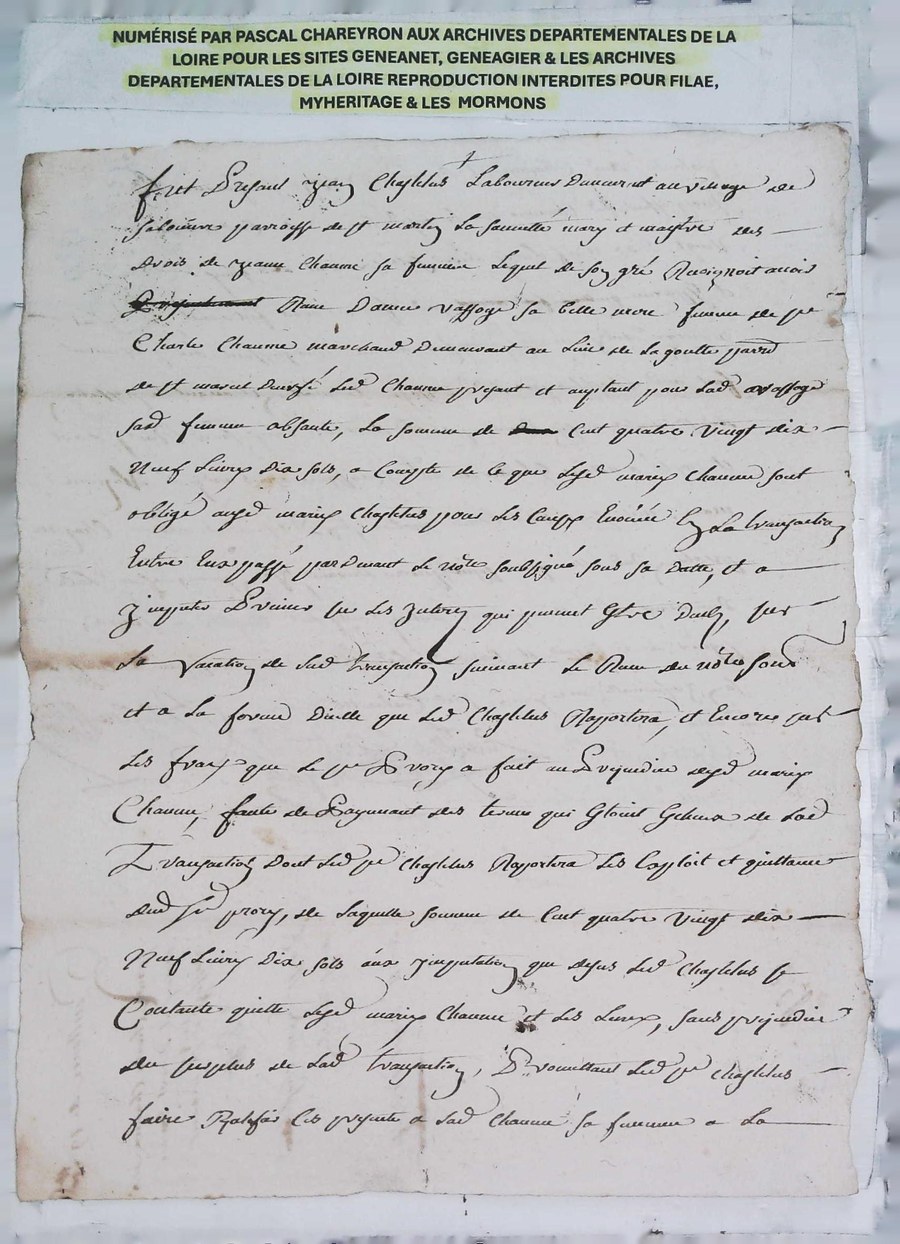 NUMÉRISÉ PAR PASCAL CHAREYRON AUX ARCHIVES DEPARTEMENTALES DE LA
LOIRE POUR LES SITES GENEANET, GENEAGIER & LES ARCHIVES
DEPARTEMENTALES DE LA LOIRE REPRODUCTION INTERDITES POUR FILAE,
MYHERITAGE & LES MORMONS
fut Presant Jean Chastelus Laboureur Demeurant au village de
parroisse de st martin La sauveté mary et maistre des
drois de Jeanne Chaume sa femme Lequel de son gré avoir
Reçu Dame vassoge sa belle mere femme de sr
Charle Chaume marchand Demeurant au Lieu de La goutte parr
de st marcel Durfé Led Chaume presant et aceptant pour Lad vassoge
sad femme absante, La somme de Cent quatre vingt dix
Neuf Livres Dix sols, a Compte de Ce que Lesd mariés Chaume sont
obligé ausd mariés Chastelus pour Les Causes Enoncée En La transaction
Entre Eux passé pardevant Le nore soubsigné sous sa Datte, et a
Jmputer Premier sur Les Jnterets qui peuvent Estre Deubs, sur
La de Lad transaction suivant Le du nore sous
et a La forme Dicelle que Led Chastelus Raportera, et Encore sur
Les frais que Le sr a fait au Prejudice desd mariés
Chaume, faute de Payemant des termes qui Estoint Echeux de Lad
Transaction Dont Led sr Chastelus Raportera Les Exploit et quittance
Dud Sr de Laquelle somme de Cent quatre vingt dix
Neuf Livres Dix sols aux Jmputation que desus Led Chastelus se
Contante quitte Lesd mariés Chaume et Les Leurs, sans prejudice
du surplus de Lad transaction, Promettant Led sr Chastelus
faire Ratifier Ces presante a Lad Chaume sa femme a La